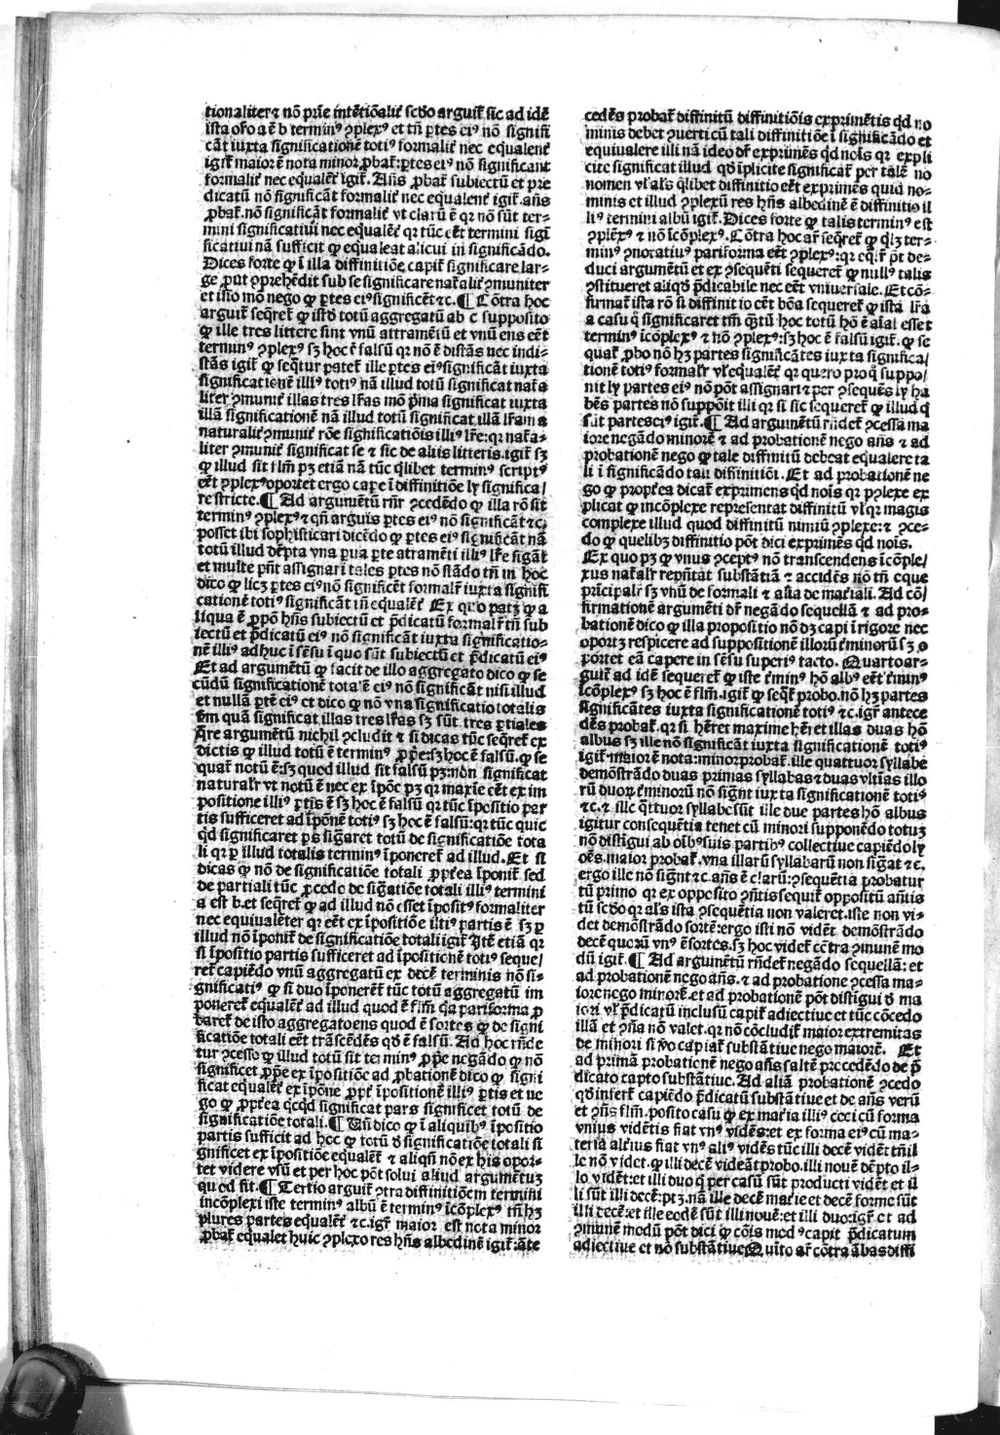 tionaliter ⁊ nõ prĩe intẽtiõalit̃ scd̃o arguit̃ sic ad idẽ
ista or̃o a ẽ b terminꝰ ꝯplexꝰ et tñ ꝑtes eiꝰ nõ signifi
cãt iuxta significationẽ totiꝰ formalit̃ nec equalent̃
igit̃ maiorẽ nota minor ꝓbat̃: ꝑtes eiꝰ nõ significant
formalit̃ nec equalẽt̃ igit̃. Añs ꝓbat̃ subiectũ et pre
dicatũ nõ significãt formalit̃ nec equalent̃ igit̃. añs
ꝓbat̃. nõ significãt formalit̃ vt clarũ ẽ qꝛ nõ sũt ter-
mini significatiui nec equalẽt̃ qꝛ tũc eẽt termini sigi
ficatiui nã sufficit ꝙ equaleat alicui in significãdo.
Dices forte ꝙ ĩ illa diffinitiõe capit̃ significare lar-
ge ꝓut ꝯprehẽdit sub se significare nat̃alit̃ ꝯmuniter
et isto mõ nego ꝙ ꝑtes eiꝰ significẽt ⁊c. ¶ Cõtra hoc
arguit̃ seq̃ret̃ ꝙ istd̃ totũ aggregatũ ab c supposito
ꝙ ille tres littere sint vnũ attramẽtũ et vnũ ens eẽt
terminꝰ ꝯplexꝰ sꝫ hoc ẽ falsũ qꝛ nõ ẽ distãs nec indi-
stãs igit̃ ꝙ seq̃tur patet̃ ille ꝑtes eiꝰ significãt iuxta
significationẽ illiꝰ totiꝰ nã illud totũ significat nat̃a
liter ꝯmunit̃ illas tres lr̃as mõ p̃ma significat iuxta
illã significationẽ nã illud totũ significat illã lr̃am a
naturalit̃ ꝯmunit̃ rõe significatiõis illiꝰ lr̃e: qꝛ nat̃a-
liter ꝯmunit̃ significat se ⁊ sic de aliis litteris. igit̃ sꝫ
ꝙ illud sit flm̃ pꝫ etiã nã tũc q̃libet terminꝰ scriptꝰ
eẽt ꝯplexꝰ oportet ergo cape ĩ diffinitiõe lꝫ significa/
re stricte. ¶ Ad argumẽtũ rñr̃ ꝯcedẽdo ꝙ illa rõ sit
terminꝰ ꝯplexꝰ ⁊ qñ arguis ꝑtes eiꝰ nõ significãt ⁊cͥ
posset ibi sophisticari dicẽdo ꝙ ꝑtes eiꝰ significãt nã
totũ illud dẽpta vna ꝑua ꝑte atramẽti illiꝰ lr̃e sigãt
et multe pñt assignari ĩ tales ptes nõ stãdo tñ in hoc
dico ꝙ licꝫ ꝑtes eiꝰ nõ significẽt formalr̃ iuxta signifi
cationẽ totiꝰ significãt tñ equalẽt̃ Ex quo patꝫ ꝙ a
liqua ẽ ꝓpõ hñs subiectũ et p̃dicatũ formalr̃ tñ sub
iectũ et p̃dicatũ eiꝰ nõ significãt iuxta significatio-
nẽ illiꝰ adhuc ĩ sẽsu ĩ quo sũt subiectũ et p̃dicatũ eiꝰ
Et ad argumẽtũ ꝙ facit de illo aggregato dico ꝙ se
cũdũ significationẽ totãe eiꝰ nõ significãt nisi illud
et nullã ꝑtẽ eiꝰ et dico ꝙ nõ vna significatio totalis
sm̃ quã significat illas tres lr̃as sꝫ sũt tres ꝑtiales
Are argumẽtũ nichil ꝯcludit ⁊ si dicas tũc seq̃ret̃ ex
dictis ꝙ illud totũ ẽ terminꝰ ꝓp̃e: sꝫ hoc ẽ falsũ. ꝙ se
quat̃ notũ ẽ: sꝫ quod illud sit falsũ pꝫ: nõn significat
naturalr̃ vt notũ ẽ nec ex ĩpõe pꝫ qꝛ maxie eẽt ex im
positione illiꝰ ꝑtis ẽ sꝫ hoc ẽ falsũ qꝛ tũc ĩpositio par
tis sufficeret ad ĩpõnẽ totiꝰ sꝫ hoc ẽ falsũ: qꝛ tũc quic
qd̃ significaret ꝑs sig̃aret totũ de significatiõe tota
li qꝛ ꝑ illud totalis terminꝰ ĩponeret̃ ad illud. Et si
dicas ꝙ nõ de significatiõe totali ꝓpt̃ea ĩponit̃ sed
de partiali tũc ꝓcedo de sig̃atiõe totali illiꝰ termini
a est b. et seq̃ret̃ ꝙ ad illud nõ esset ĩpositꝰ formaliter
nec equiualẽter qꝛ eẽt ex ĩpositiõe illiꝰ partis ẽ sꝫ ꝑ
illud nõ ĩponit̃ de significatiõe totali igit̃ Itẽ etiã qꝛ
si ĩpositio partis sufficeret ad ĩpositionẽ totiꝰ seque/
ret̃ capiẽdo vnũ aggregatũ ex decẽ terminis nõ si-
gnificatiꝰ ꝙ si duo ĩponerẽt̃ tũc totũ aggregatũ im
poneret̃ equalẽt̃ ad illud quod ẽ flm̃ q̃a pariforma ꝑ
baret̃ de isto aggregato ens quod ẽ sortes ꝙ de signi
ficatiõe totali eẽt trãscẽdẽs qd̃ ẽ falsũ. Ad hoc rñde
tur ꝯcesso ꝙ illud totũ sit terminꝰ ꝓp̃e negãdo ꝙ nõ
significet ꝓp̃e ex ĩpositiõe ad ꝓbationẽ dico ꝙ signi
ficat equalẽt̃ ex ĩpõne ꝓpt̃ ĩpositionẽ illiꝰ ꝑtis et ne
go ꝙ ꝓpt̃ea qcq̃d significat pars significet totũ de
significatiõe totali. ¶ Vñ dico ꝙ ĩ aliquibꝰ ĩpositio
partis sufficit ad hoc ꝙ totũ d̃ significatiõe totali si
gnificet ex ĩpositiõe equalẽt̃ ⁊ aliqñ nõ ex his opor-
tet videre vsũ et per hoc põt solui aliud argumẽtuꝫ
quod fit. ¶ Tertio arguit̃ ꝯtra diffinitiõem termini
incõplexi iste terminꝰ albũ ẽ terminꝰ icõplexꝰ tñ hꝫ
plures partes equalẽt̃ ⁊c. igit̃ maior est nota minor
ꝓbat̃ equalet huic ꝯplexo res hñs albedinẽ igit̃: ãte
cedẽs probat̃ diffinitũ diffinitiõis exprimẽtis qd̃ no
minis debet ꝯuerti cũ tali diffinitiõe ĩ significãdo et
equiualere illi nã ideo dr̃ exprimẽs qd̃ nois̃ qꝛ expli
cite significat illud qd̃ iplicite significat̃ per talẽ no
nomen vl̃ als̃ q̃libet diffinitio eẽt exprimẽs quid no-
minis et illud ꝯplexũ res hñs albedinẽ ẽ diffinitio il
liꝰ termini albũ igit̃. Dices forte ꝙ talis terminꝰ est
ꝯplexꝰ ⁊ nõ icõplexꝰ. Cõtra hoc ar̃ seq̃ret̃ ꝙ q̃lꝫ ter-
minꝰ ꝯnotatiuꝰ pariforma eẽt ꝯplexꝰ: qꝛ eq̃lit̃ põt de-
duci argumẽtũ et ex ꝯsequẽti sequeret̃ ꝙ nullꝰ talis
ꝯstitueret aliqd̃ p̃dicabile nec eẽt vniuersale. Et cõ-
firmat̃ ista rõ si diffinitio eẽt bõa sequeret̃ ꝙ ista lr̃a
a casu q̃ significaret tm̃ q̃tũ hoc totũ hõ ẽ aĩal esset
terminꝰ icõplexꝰ ⁊ nõ ꝯplexꝰ: sꝫ hoc ẽ falsũ igit̃. ꝙ se
quat̃ ꝓbo nõ hꝫ partes significãtes iuxta significa/
tionẽ totiꝰ formalr̃ vl̃ equalẽt̃ qꝛ quero pro q̃ suppo/
nit lꝫ partes eiꝰ nõ põt assignari ⁊ per ꝯsequẽs lꝫ ha
bẽs partes nõ suppõit illi qꝛ si sic sequeret̃ ꝙ illud q̃
sũt partes eiꝰ igit̃. ¶ Ad argumẽtũ rñdet̃ ꝯcessa ma
iore negãdo minorẽ ⁊ ad probationẽ nego añs ⁊ ad
probationẽ nego ꝙ tale diffinitũ debeat equalere ta
li ĩ significãdo tali diffinitiõi. Et ad probationẽ ne
go ꝙ propt̃ea dicat̃ exprimens qd̃ nois̃ qꝛ ꝯplexe ex
plicat ꝙ incõplexe representat diffinitũ vl̃ qꝛ magis
complexe illud quod diffinitũ nimiũ ꝯplexe: ⁊ ꝯce-
do ꝙ quelibꝫ diffinitio põt dici exprimẽs qd̃ nois̃.
Ex quo pꝫ ꝙ vnus ꝯceptꝰ nõ transcendens icõple/
xus nat̃alr̃ repñtat substãtiã ⁊ accidẽs nõ tñ eque
pricipalr̃ sꝫ vnũ de formali ⁊ alia de mat̃iali. Ad cõ/
firmationẽ argumẽti dr̃ negãdo sequellã ⁊ ad pro-
bationẽ dico ꝙ illa propositio nõ dꝫ capi ĩ rigore nec
oportꝫ respicere ad suppositionẽ illorũ t̃minorũ sꝫ o
portet eã capere in sẽsu superiꝰ tacto. Quarto ar-
guit̃ ad idẽ sequeret̃ ꝙ iste t̃minꝰ hõ albꝰ eẽt t̃minꝰ
icõplexꝰ sꝫ hoc ẽ flm̃. igit̃ ꝙ seq̃t̃ probo. nõ hꝫ partes
significãtes iuxta significationẽ totiꝰ ⁊c. igr̃ antece
dẽs probat̃. qꝛ si hẽret maxime hẽret illas duas hõ
albus sꝫ ille nõ significãt iuxta significationẽ totiꝰ
igit̃ maior ẽ nota: minor probat̃. ille quattuor syllabe
demõstrãdo duas primas syllabas ⁊ duas vltĩas illo
rũ duoꝝ t̃minorũ nõ sigñt iuxta significationẽ totiꝰ
⁊c. ⁊ ille q̃ttuor syllabe sũt ille due partes hõ albus
igitur consequẽtia tenet cũ minori supponẽdo totuꝫ
nõ distigui ab oib̃ꝰ suis partibꝰ collectiue capiẽdo lꝫ
oẽs. maior probat̃. vna illarũ syllabarũ non sig̃at ⁊c.
ergo ille nõ sigñt ⁊c. añs ẽ clarũ: ꝯsequẽtia probatur
tũ primo qꝛ ex opposito ꝯñtis sequit̃ oppositũ añtis
tũ scd̃o qꝛ als̃ ista ꝯsequẽtia non valeret. iste non vi-
det demõstrãdo sortẽ: ergo isti nõ vidẽt demõstrãdo
decẽ quorũ vnꝰ ẽ sortes. sꝫ hoc videt̃ cõtra ꝯmunẽ mo
dũ igit̃. ¶ Ad argumẽtũ rñdet̃ negãdo sequellã: et
ad probationẽ nego añs. ⁊ ad probationẽ ꝯcessa ma-
iore nego minorẽ. et ad probationẽ põt distigui d̃ ma
iori vl̃ p̃dicatũ inclusũ capit̃ adiectiue et tũc cõcedo
illã et ꝯñã nõ valet. qꝛ nõ cõcludit̃ maior extremitas
de minori si v̾o capiat̃ substãtiue nego maiorẽ. Et
ad primã probationẽ nego añs saltẽ precedẽdo de p̃
dicato capto substãtiue. Ad aliã probationẽ ꝯcedo
qd̃ infert̃ capiẽdo p̃dicatũ substãtiue et de añs verũ
et ꝯñs flm̃. posito casu ꝙ ex mat̃ia illiꝰ ceci cũ forma
vniꝰ vidẽtis fiat vnꝰ vidẽs: et ex forma eiꝰ cũ ma-
teria alteriꝰ fiat vnꝰ aliꝰ vidẽs tũc illi decẽ vidẽt tñ il
le nõ videt. ꝙ illi decẽ videãt probo. illi nouẽ dẽpto il-
lo vidẽt: et illi duo q̃ per casũ sũt producti vidẽt et il
li sũt illi decẽ: ptꝫ. nã ille decẽ mat̃ie et decẽ forme sũt
illi decẽ: et ille eedẽ sũt illi nouẽ: et illi duo: igit̃ et ad
ꝯmunẽ modũ põt dici ꝙ cõis modꝰ capit p̃dicatum
adiectiue et nõ substãtiue. Quĩto ar̃ cõtra ãbas diffi